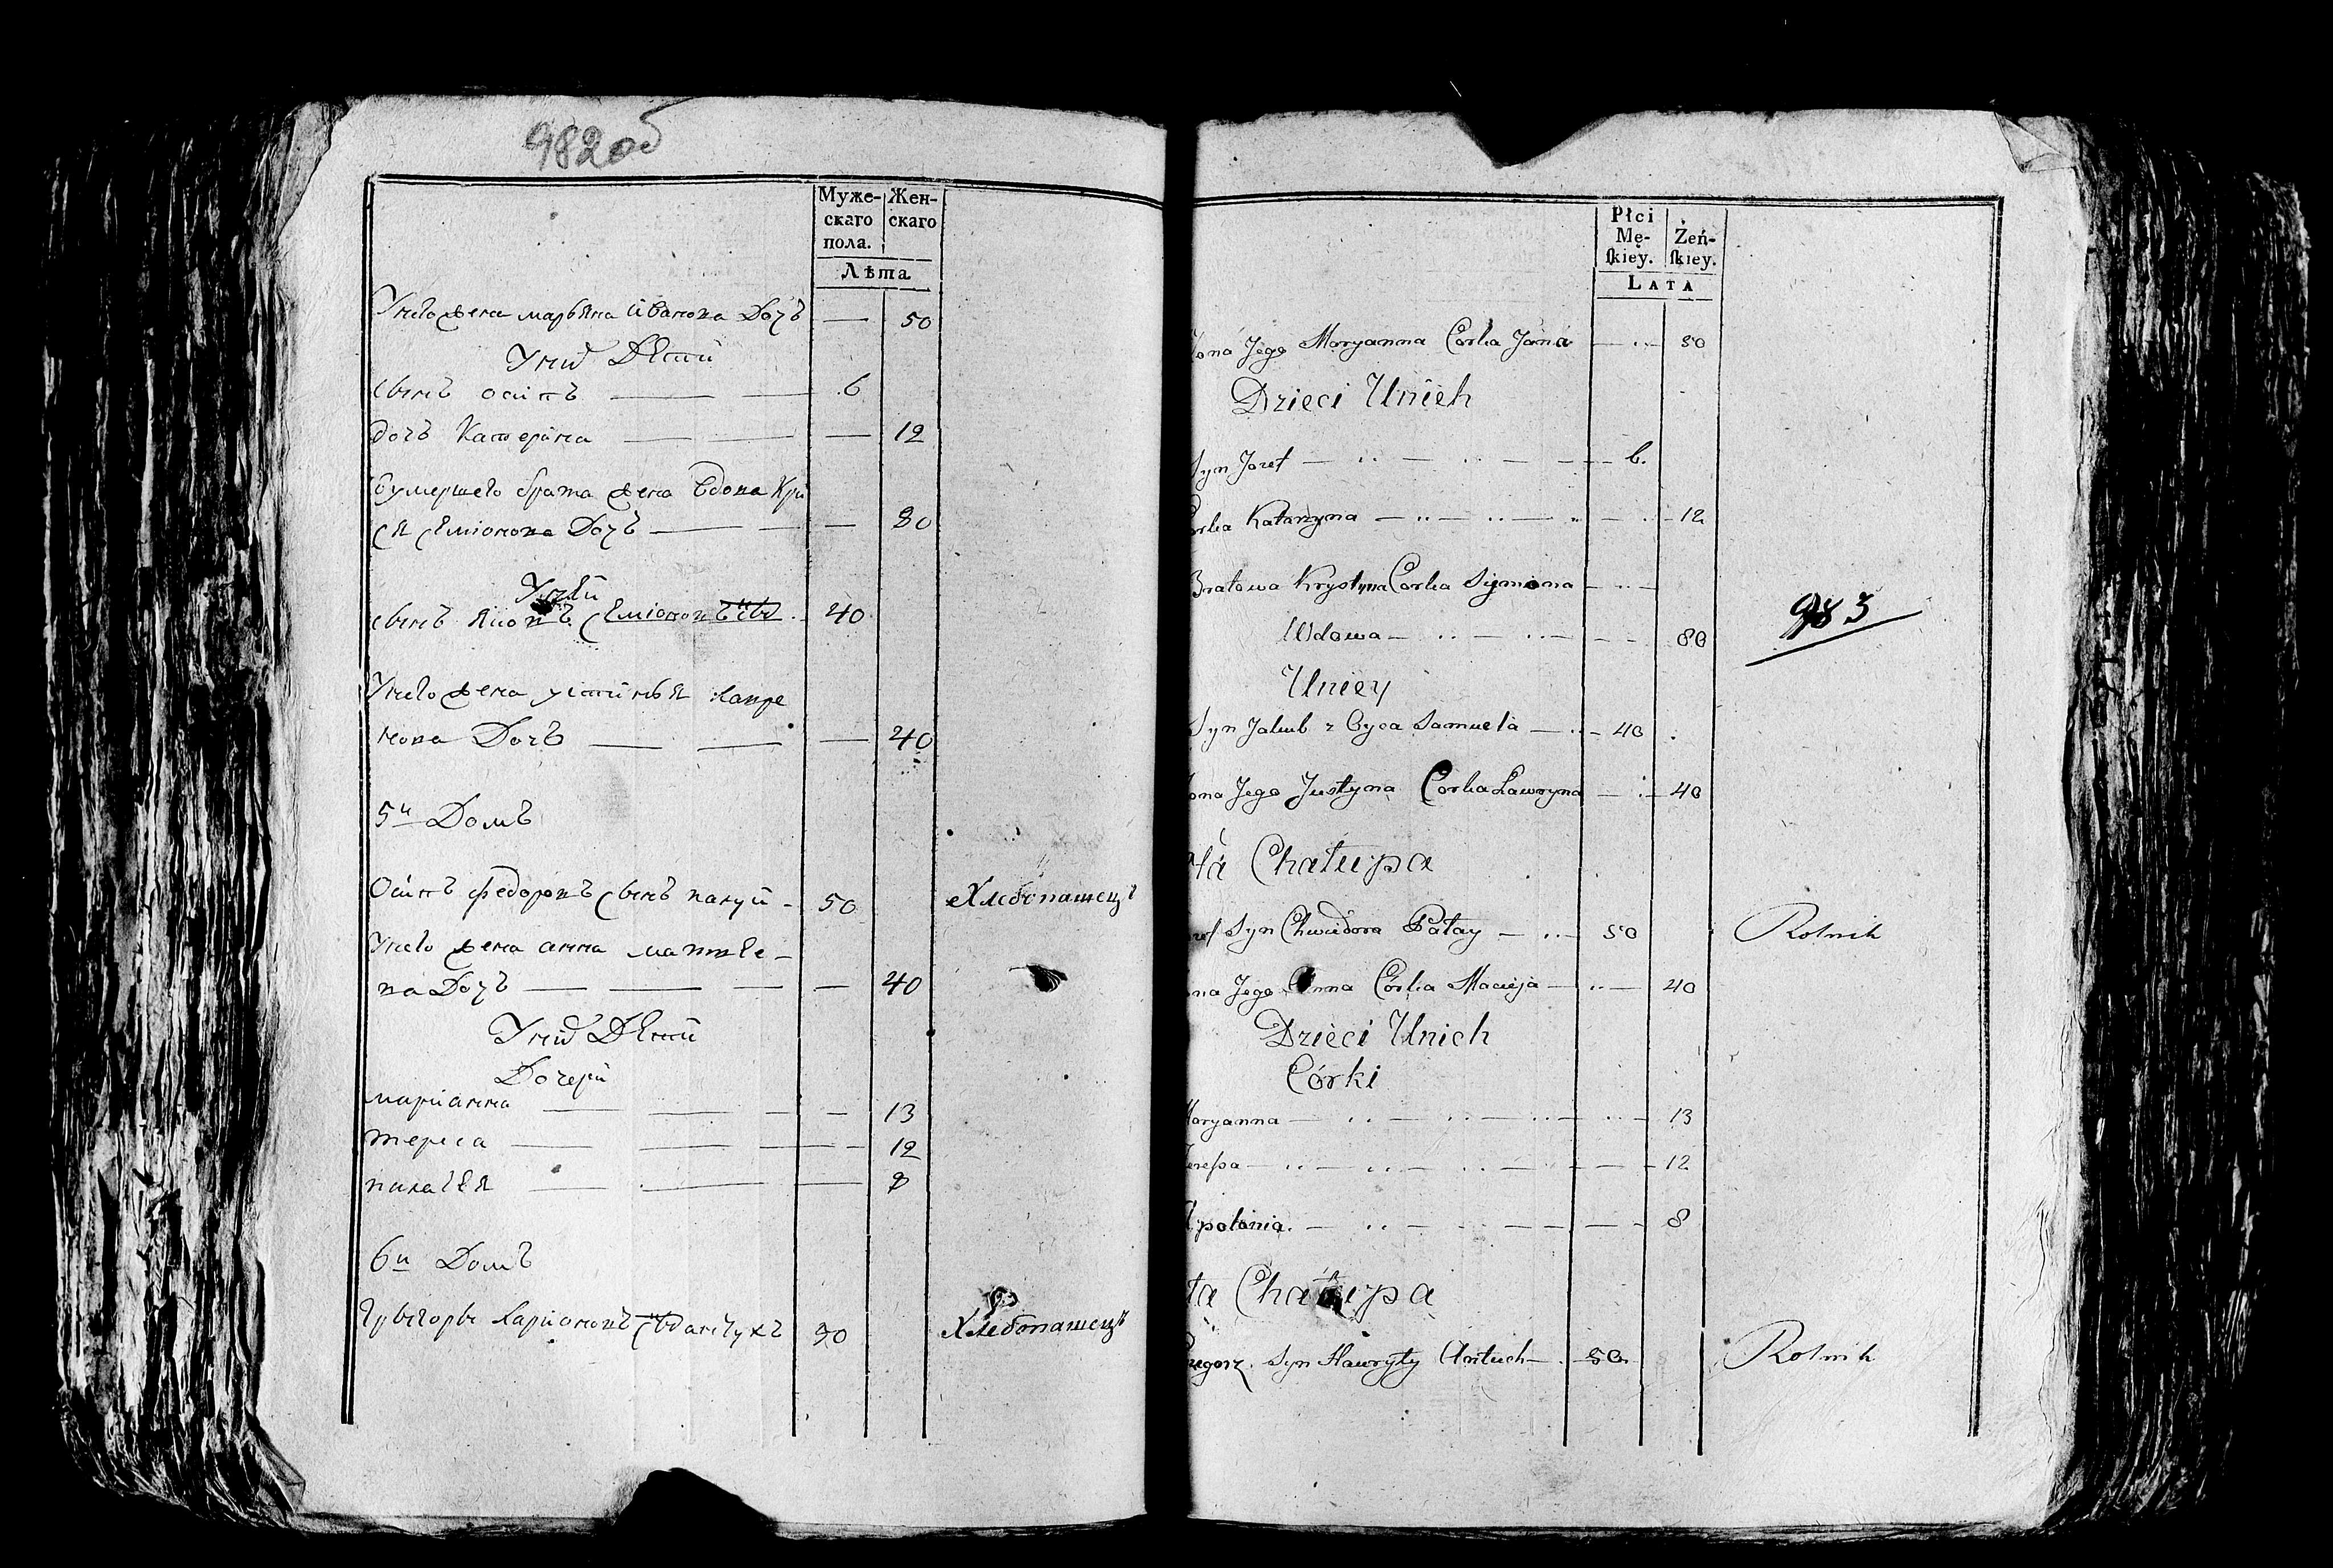 982 об
Муже- Жен-
скаго скаго
пола.
Лѣта
У него жена марьяна иванова Дочъ — 50
У них Дети
сынъ осипъ — — 6
дочъ Катерина — — — 12
умершего брата жена вдова Кри
ся семионова Дочъ — — — 80
У ней
сынъ Яковъ Семионовъ 40
У него жена устинья лавре
нова Дочъ — — — 40
5й Домъ
Осипъ федоровъ сынъ палуй - 50 Хлебопашецъ
У него жена анна матве-
ва Дочъ — — — — 40
У них Дети
Дочери
марианна — — — — 13
тереса — — — — 12
палагея — — — 8
6й Домъ
Хлебопашецъ
Płci
Mę- Żeń-
ſkiey. ſkiey.
LATA
Żona Jego Maryanna Corka Jana — 50
Dzieci Unich
Syn Jozef — 6.
Corka Katarzyna — 12
Bratowa Krystyna Corka Symona —
Wdowa — 80
983
Uniey
Syn Jakub z Oyca Samuela — 40
Żona Jego Justyna Corka Ławryna — 40
5ta Chałupa
Jozef Syn Chwiedora Pałay — 50 Rolnik
Żona Jego Anna Córka Macieja — 40
Dzieci Unich
Córki
Maryanna — 13
Tereſsa — 12
Apolonia. — 8
6ta Chałupa
Gregorz Syn Hawryły Antuch — 50 Rolnik